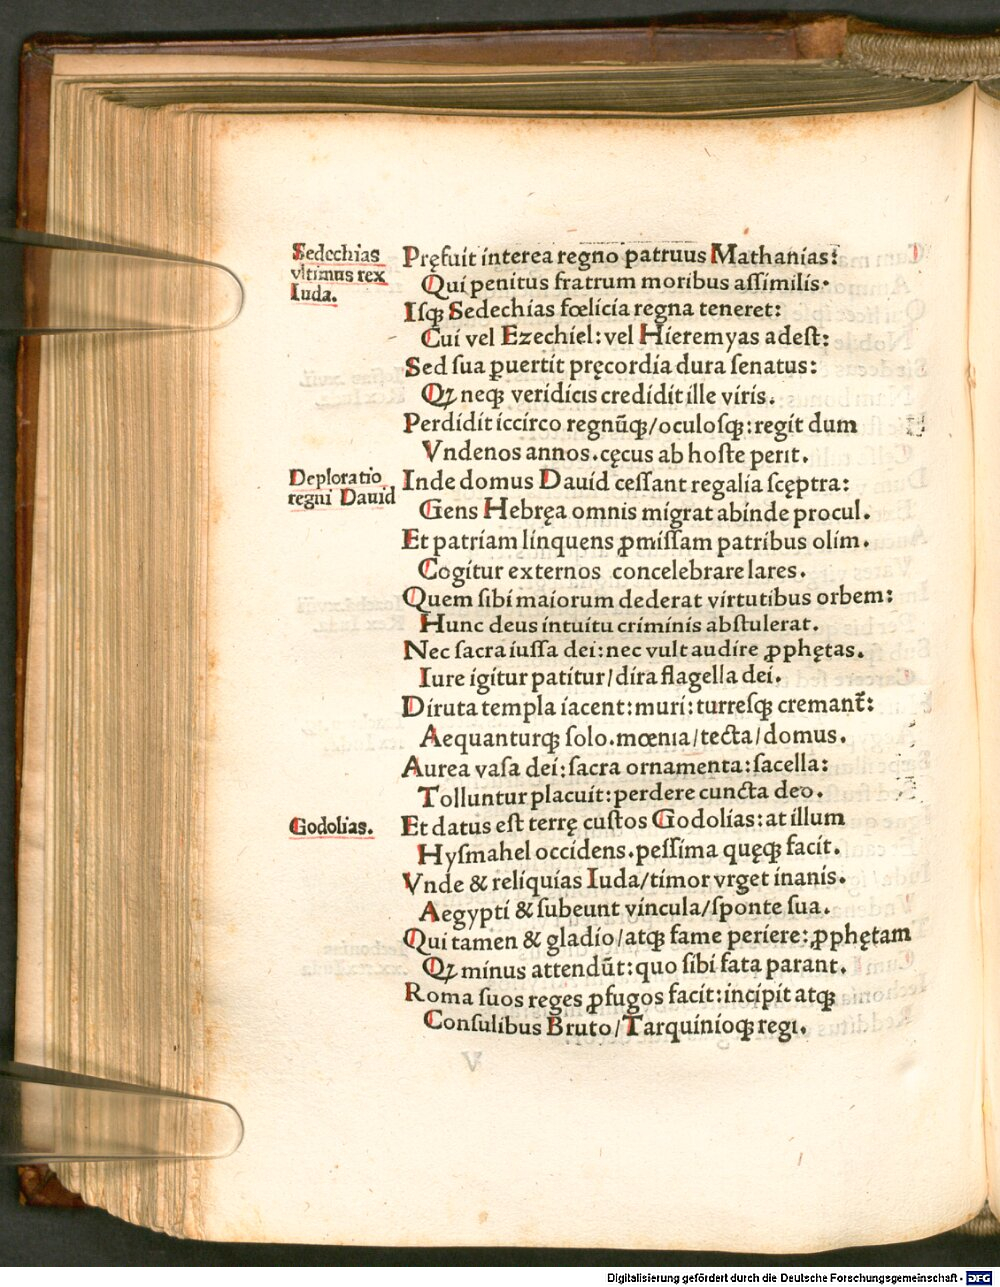 Sedechias
vltimus rex
Iuda.
Pręfuit interea regno patruus Mathanias:
Qui penitus fratrum moribus aſſimilis.
Iſqꝫ Sedechias fœlicia regna teneret:
Cui vel Ezechiel: vel Hieremyas adeſt:
Sed ſua ꝑuertit pręcordia dura ſenatus:
Qꝫ neqꝫ veridicis credidit ille viris.
Perdidit iccirco regnūqꝫ/oculoſqꝫ: regit dum
Vndenos annos. cęcus ab hoſte perit.
Deploratio
regni Dauid
Inde domus Dauid ceſſant regalia ſcęptra:
Gens Hebręa omnis migrat abinde procul.
Et patriam linquens ꝓmiſſam patribus olim.
Cogitur externos concelebrare lares.
Quem ſibi maiorum dederat virtutibus orbem:
Hunc deus intuitu criminis abſtulerat.
Nec ſacra iuſſa dei: nec vult audire ꝓphętas.
Iure igitur patitur/dira flagella dei.
Diruta templa iacent: muri: turreſqꝫ cremant̃:
Aequanturqꝫ ſolo. mœnia/tecta/domus.
Aurea vaſa dei: ſacra ornamenta: ſacella:
Tolluntur placuit: perdere cuncta deo.
Godolias.
Et datus eſt terrę cuſtos Godolias: at illum
Hyſmahel occidens. peſſima quęqꝫ facit.
Vnde & reliquias Iuda/timor vrget inanis.
Aegypti & ſubeunt vincula/ſponte ſua.
Qui tamen & gladio/atqꝫ fame periere: ꝓphętam
Qꝫ minus attendūt: quo ſibi fata parant.
Roma ſuos reges ꝓfugos facit: incipit atqꝫ
Conſulibus Bruto/Tarquinioqꝫ regi.
Digitalisierung gefördert durch die Deutsche Forschungsgemeinschaft - DFG